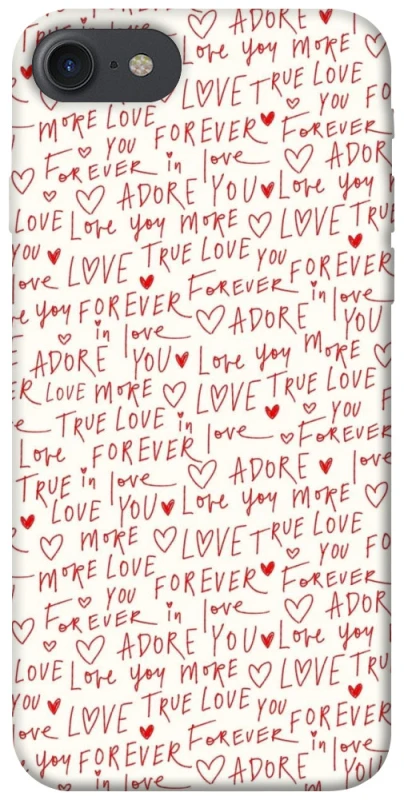 ADORE
TRUE in love Love you MORE
FOREVER LOVE TRUE LOVE
MORE LOVE YOU FO
YOU FOREVER FOREVER
FOREVER in love ADOR
ADORE YOU Love you M
LOVE Love you MORE LOVE TRUE
YOU TRUE LOVE YOU FOREVER
ove LOVE FOREVER in love
e you FOREVER ADORE YOU
in love
E ADORE YOU Love you MORE
R LOVE MORE LOVE TRUE LOVE
e TRUE LOVE in love YOU
Love FOREVER FOREVER
TRUE in love ADORE love
LOVE YOU Love you MORE
MORE LOVE TRUE LOVE
MORE LOVE YOU FO
YOU FOREVER FOREVER
FOREVER in love ADOR
ADORE YOU Love you M
LOVE Love you MORE LOVE TRU
YOU TRUE LOVE YOU FOREVER
ove LOVE FOREVER in love
you FOREVER ADORE
in love